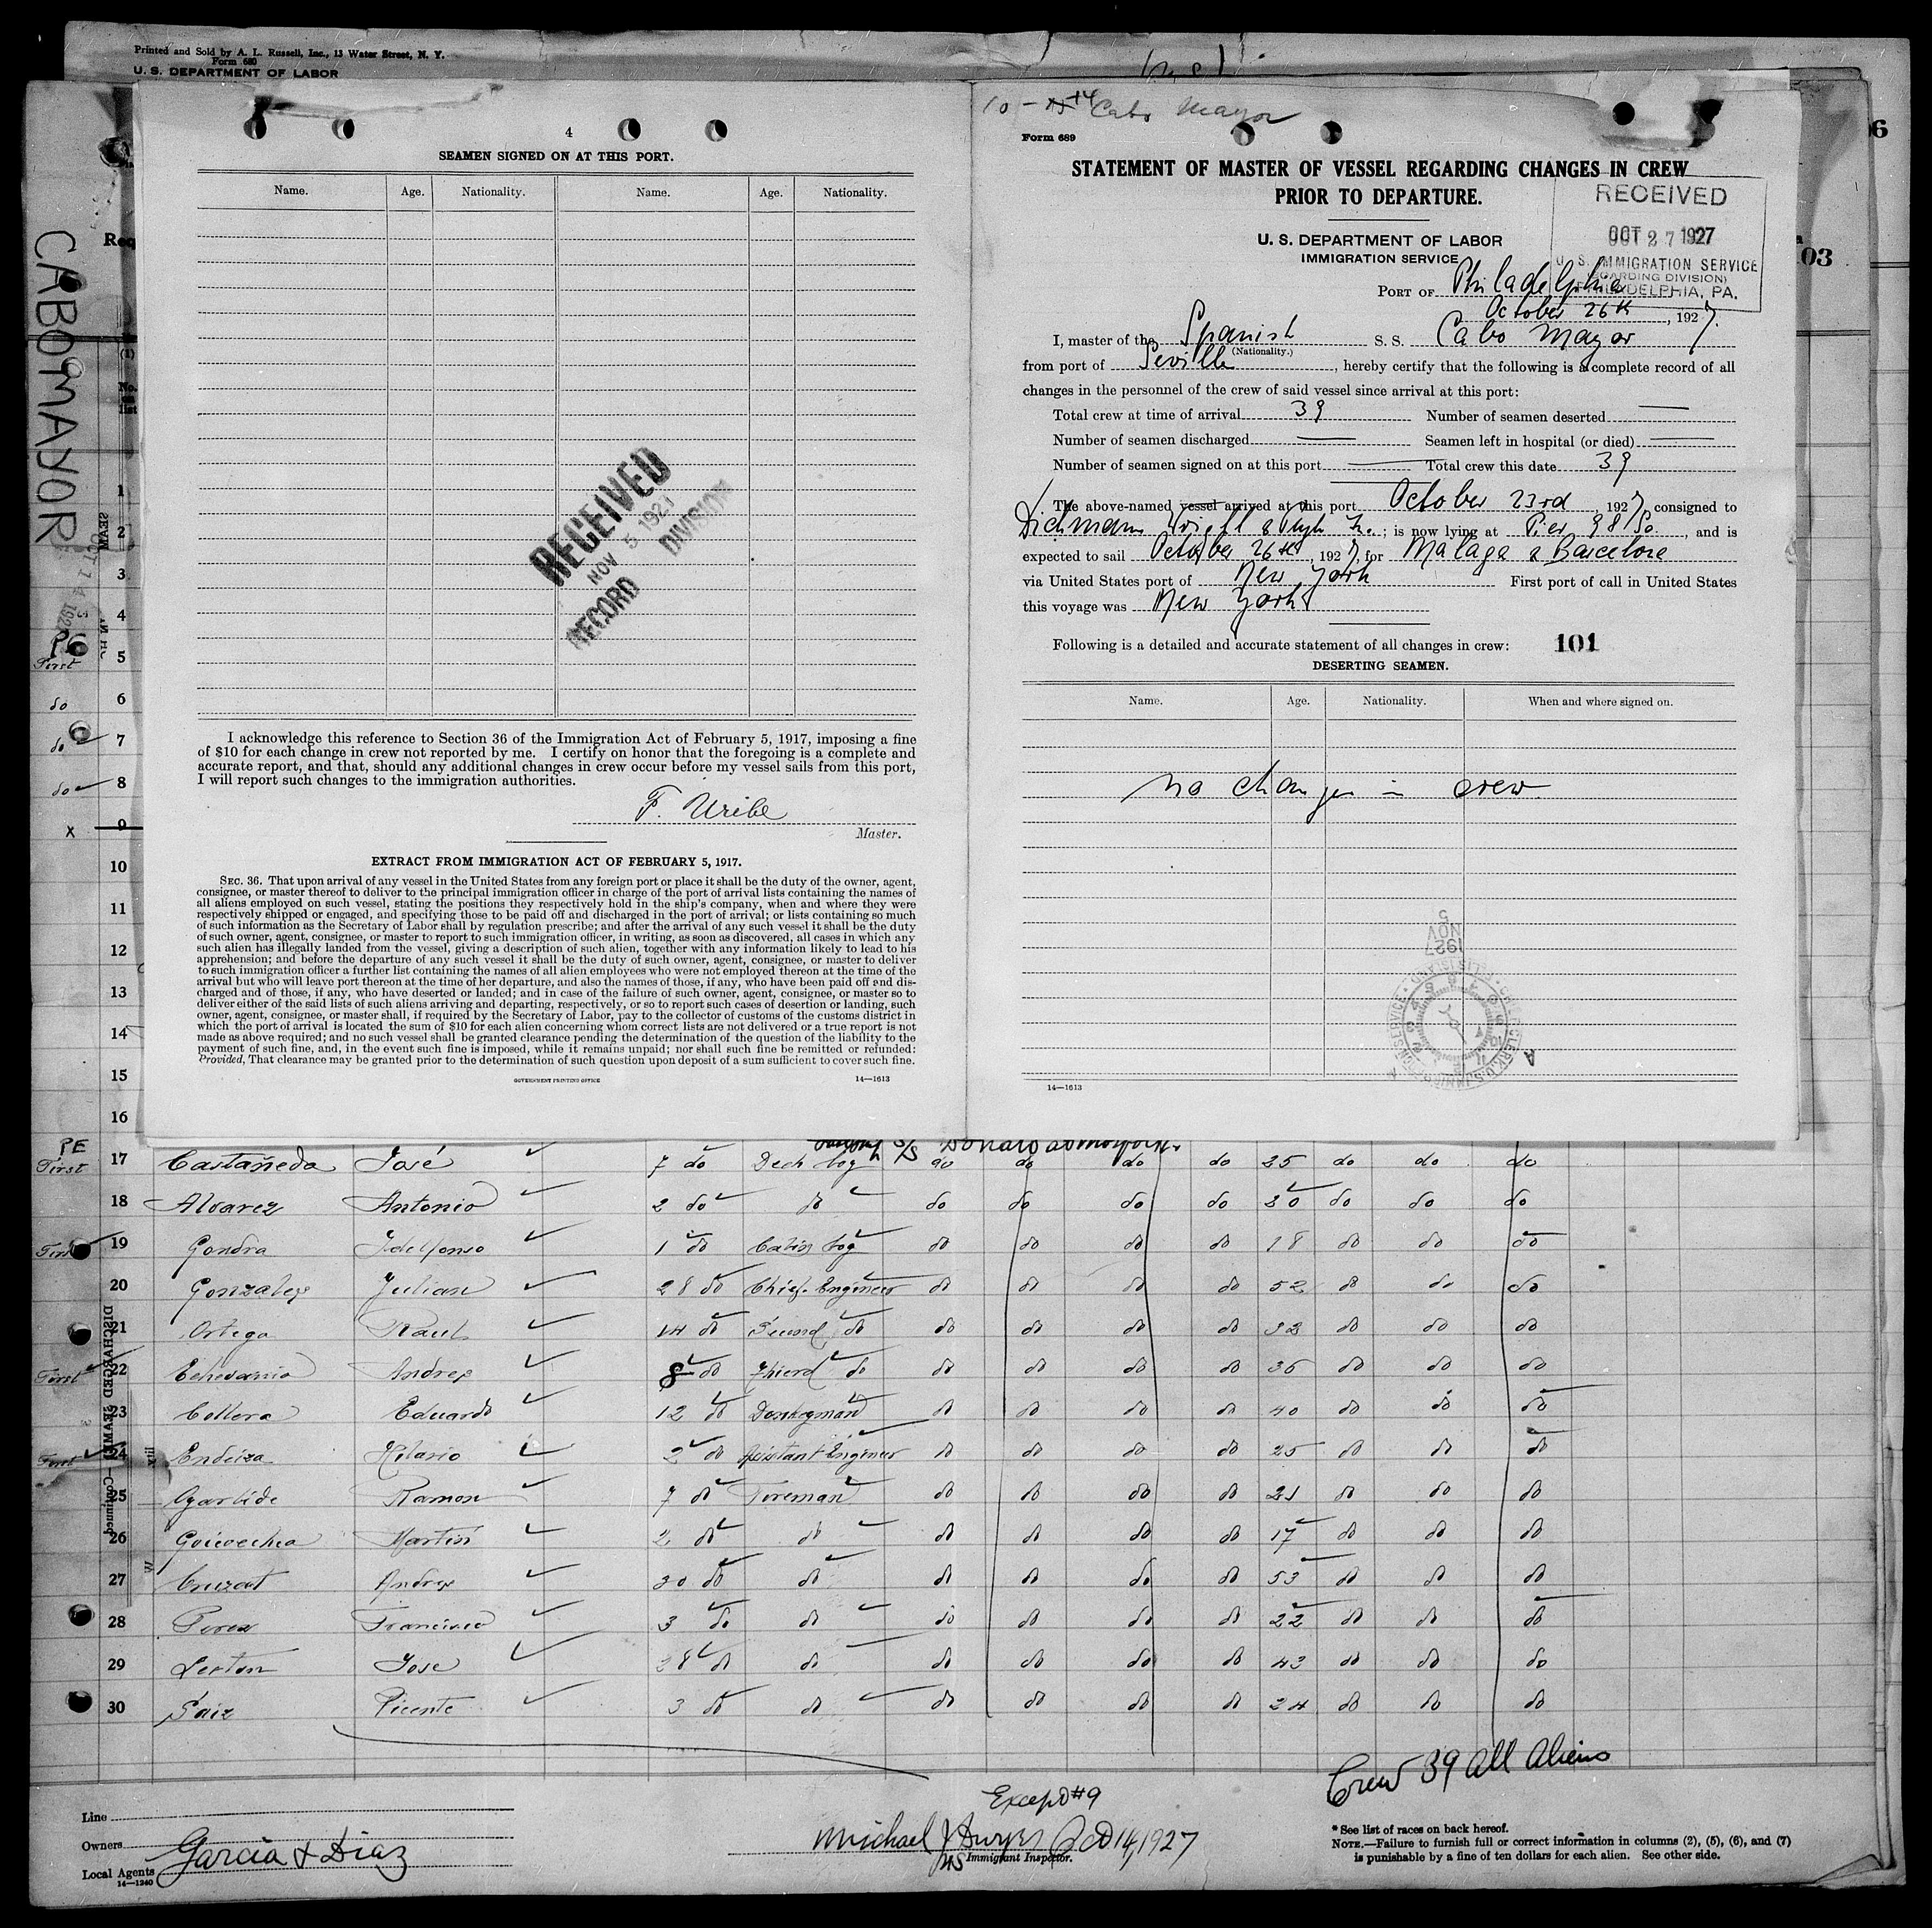 Printed and Sold by A. L. Russell, Inc., 13 Water Street, N. Y.
Form 680
U. S. DEPARTMENT OF LABOR
CABO MAYOR
4
SEAMEN SIGNED ON AT THIS PORT.
Name. Age. Nationality. Name. Age. Nationality.
RECEIVED
NOV 5 1927
RECORD DIVISION
I acknowledge this reference to Section 36 of the Immigration Act of February 5, 1917, imposing a fine
of $10 for each change in crew not reported by me. I certify on honor that the foregoing is a complete and
accurate report, and that, should any additional changes in crew occur before my vessel sails from this port,
I will report such changes to the immigration authorities.
F. Uribe
Master.
EXTRACT FROM IMMIGRATION ACT OF FEBRUARY 5, 1917.
SEC. 36. That upon arrival of any vessel in the United States from any foreign port or place it shall be the duty of the owner, agent,
consignee, or master thereof to deliver to the principal immigration officer in charge of the port of arrival lists containing the names of
all aliens employed on such vessel, stating the positions they respectively hold in the ship's company, when and where they were
respectively shipped or engaged, and specifying those to be paid off and discharged in the port of arrival; or lists containing so much
of such information as the Secretary of Labor shall by regulation prescribe; and after the arrival of any such vessel it shall be the duty
of such owner, agent, consignee, or master to report to such immigration officer, in writing, as soon as discovered, all cases in which any
such alien has illegally landed from the vessel, giving a description of such alien, together with any information likely to lead to his
apprehension; and before the departure of any such vessel it shall be the duty of such owner, agent, consignee, or master to deliver
to such immigration officer a further list containing the names of all alien employees who were not employed thereon at the time of the
arrival but who will leave port thereon at the time of her departure, and also the names of those, if any, who have been paid off and dis-
charged and of those, if any, who have deserted or landed; and in case of the failure of such owner, agent, consignee, or master so to
deliver either of the said lists of such aliens arriving and departing, respectively, or so to report such cases of desertion or landing, such
owner, agent, consignee, or master shall, if required by the Secretary of Labor, pay to the collector of customs of the customs district in
which the port of arrival is located the sum of $10 for each alien concerning whom correct lists are not delivered or a true report is not
made as above required; and no such vessel shall be granted clearance pending the determination of the question of the liability to the
payment of such fine, and, in the event such fine is imposed, while it remains unpaid; nor shall such fine be remitted or refunded:
Provided, That clearance may be granted prior to the determination of such question upon deposit of a sum sufficient to cover such fine.
GOVERNMENT PRINTING OFFICE 14—1613
Cabo Mayor
Form 689
STATEMENT OF MASTER OF VESSEL REGARDING CHANGES IN CREW
PRIOR TO DEPARTURE.
RECEIVED
OCT 27 1927
U. S. IMMIGRATION SERVICE
(BOARDING DIVISION)
PHILADELPHIA, PA.
U. S. DEPARTMENT OF LABOR
IMMIGRATION SERVICE
PORT OF Philadelphia
October 26th, 1927.
I, master of the Spanish S. S. Cabo Mayor
(Nationality.)
from port of Seville, hereby certify that the following is a complete record of all
changes in the personnel of the crew of said vessel since arrival at this port:
Total crew at time of arrival 39 Number of seamen deserted —
Number of seamen discharged — Seamen left in hospital (or died) —
Number of seamen signed on at this port — Total crew this date 39
The above-named vessel arrived at this port October 23rd, 1927, consigned to
Dichmann Wright & Pugh ; is now lying at Pier 98 So., and is
expected to sail October 26th, 1927, for Malaga & Barcelona
via United States port of New York First port of call in United States
this voyage was New York
Following is a detailed and accurate statement of all changes in crew: 101
DESERTING SEAMEN.
Name. Age. Nationality. When and where signed on.
no changes in crew
1927 NOV 5
14—1613
PE
First 17 Castañeda José 7 do Deck boy do do do do 25 do do do
18 Alvarez Antonio 2 do do do do do do 30 do do do
First 19 Gondra Idelfonso 1 do Cabin boy do do do do 18 do do do
20 Gonzalez Julian 28 do Chief Engineer do do do do 52 do do do
21 Ortega Raul 14 do Second do do do do do 32 do do do
First 22 Echevarria Andres 8 do Thierd do do do do do 36 do do do
23 Collera Eduardo 12 do Donkeyman do do do do 40 do do do
First 24 Endeiza Hilario 2 do Assistant Engineer do do do do 25 do do do
25 Ramon 7 do Fireman do do do do 21 do do do
26 Goicoechea Martin 2 do do do do do do 17 do do do
27 Cruzat Andres 30 do do do do do do 53 do do do
28 Perez Francisco 3 do do do do do do 22 do do do
29 Jose 28 do do do do do do 43 do do do
30 Saiz Vicente 3 do do do do do do 24 do do do
DISCHARGED SEAMEN—Continued
Except #9
Crew 39 all Aliens
Line
Owners
Garcia & Diaz
Local Agents
14—1240
Michael J Dwyer Oct 14, 1927
Immigrant Inspector.
* See list of races on back hereof.
NOTE.—Failure to furnish full or correct information in columns (2), (5), (6), and (7)
is punishable by a fine of ten dollars for each alien. See other side.